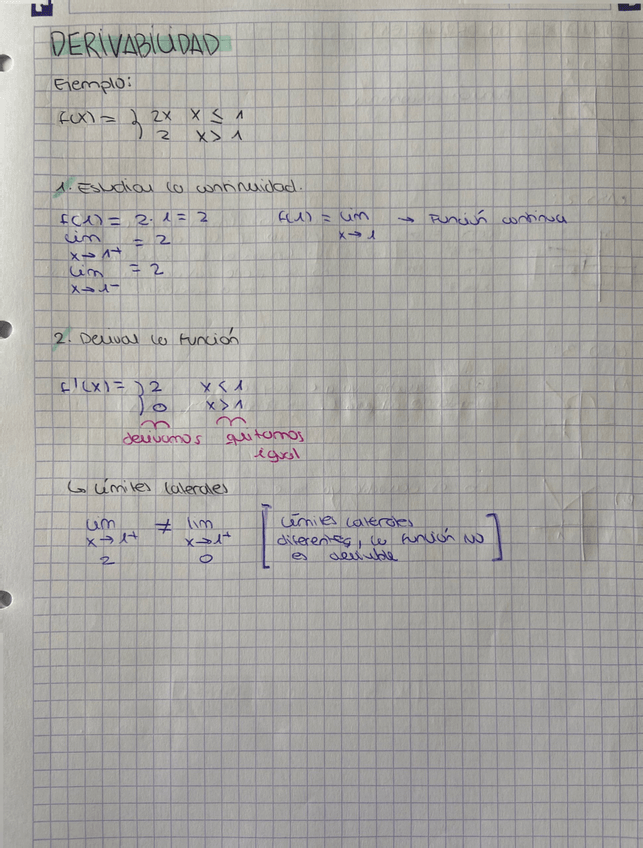 DERIVABILIDAD
Ejemplo:
f(x) = { 2x x ≤ 1
2 x > 1
1. Estudiar la continuidad.
f(1) = 2 · 1 = 2 f(1) = lim x→1 → Función continua
lim x→1+ = 2
lim x→1- = 2
2. Derivar la función
f'(x) = { 2 x < 1
0 x > 1
derivamos quitamos
igual
↳ Límites laterales
lim x→1+ ≠ lim x→1+ [Límites laterales
diferentes, la función NO
2 0 es derivable]